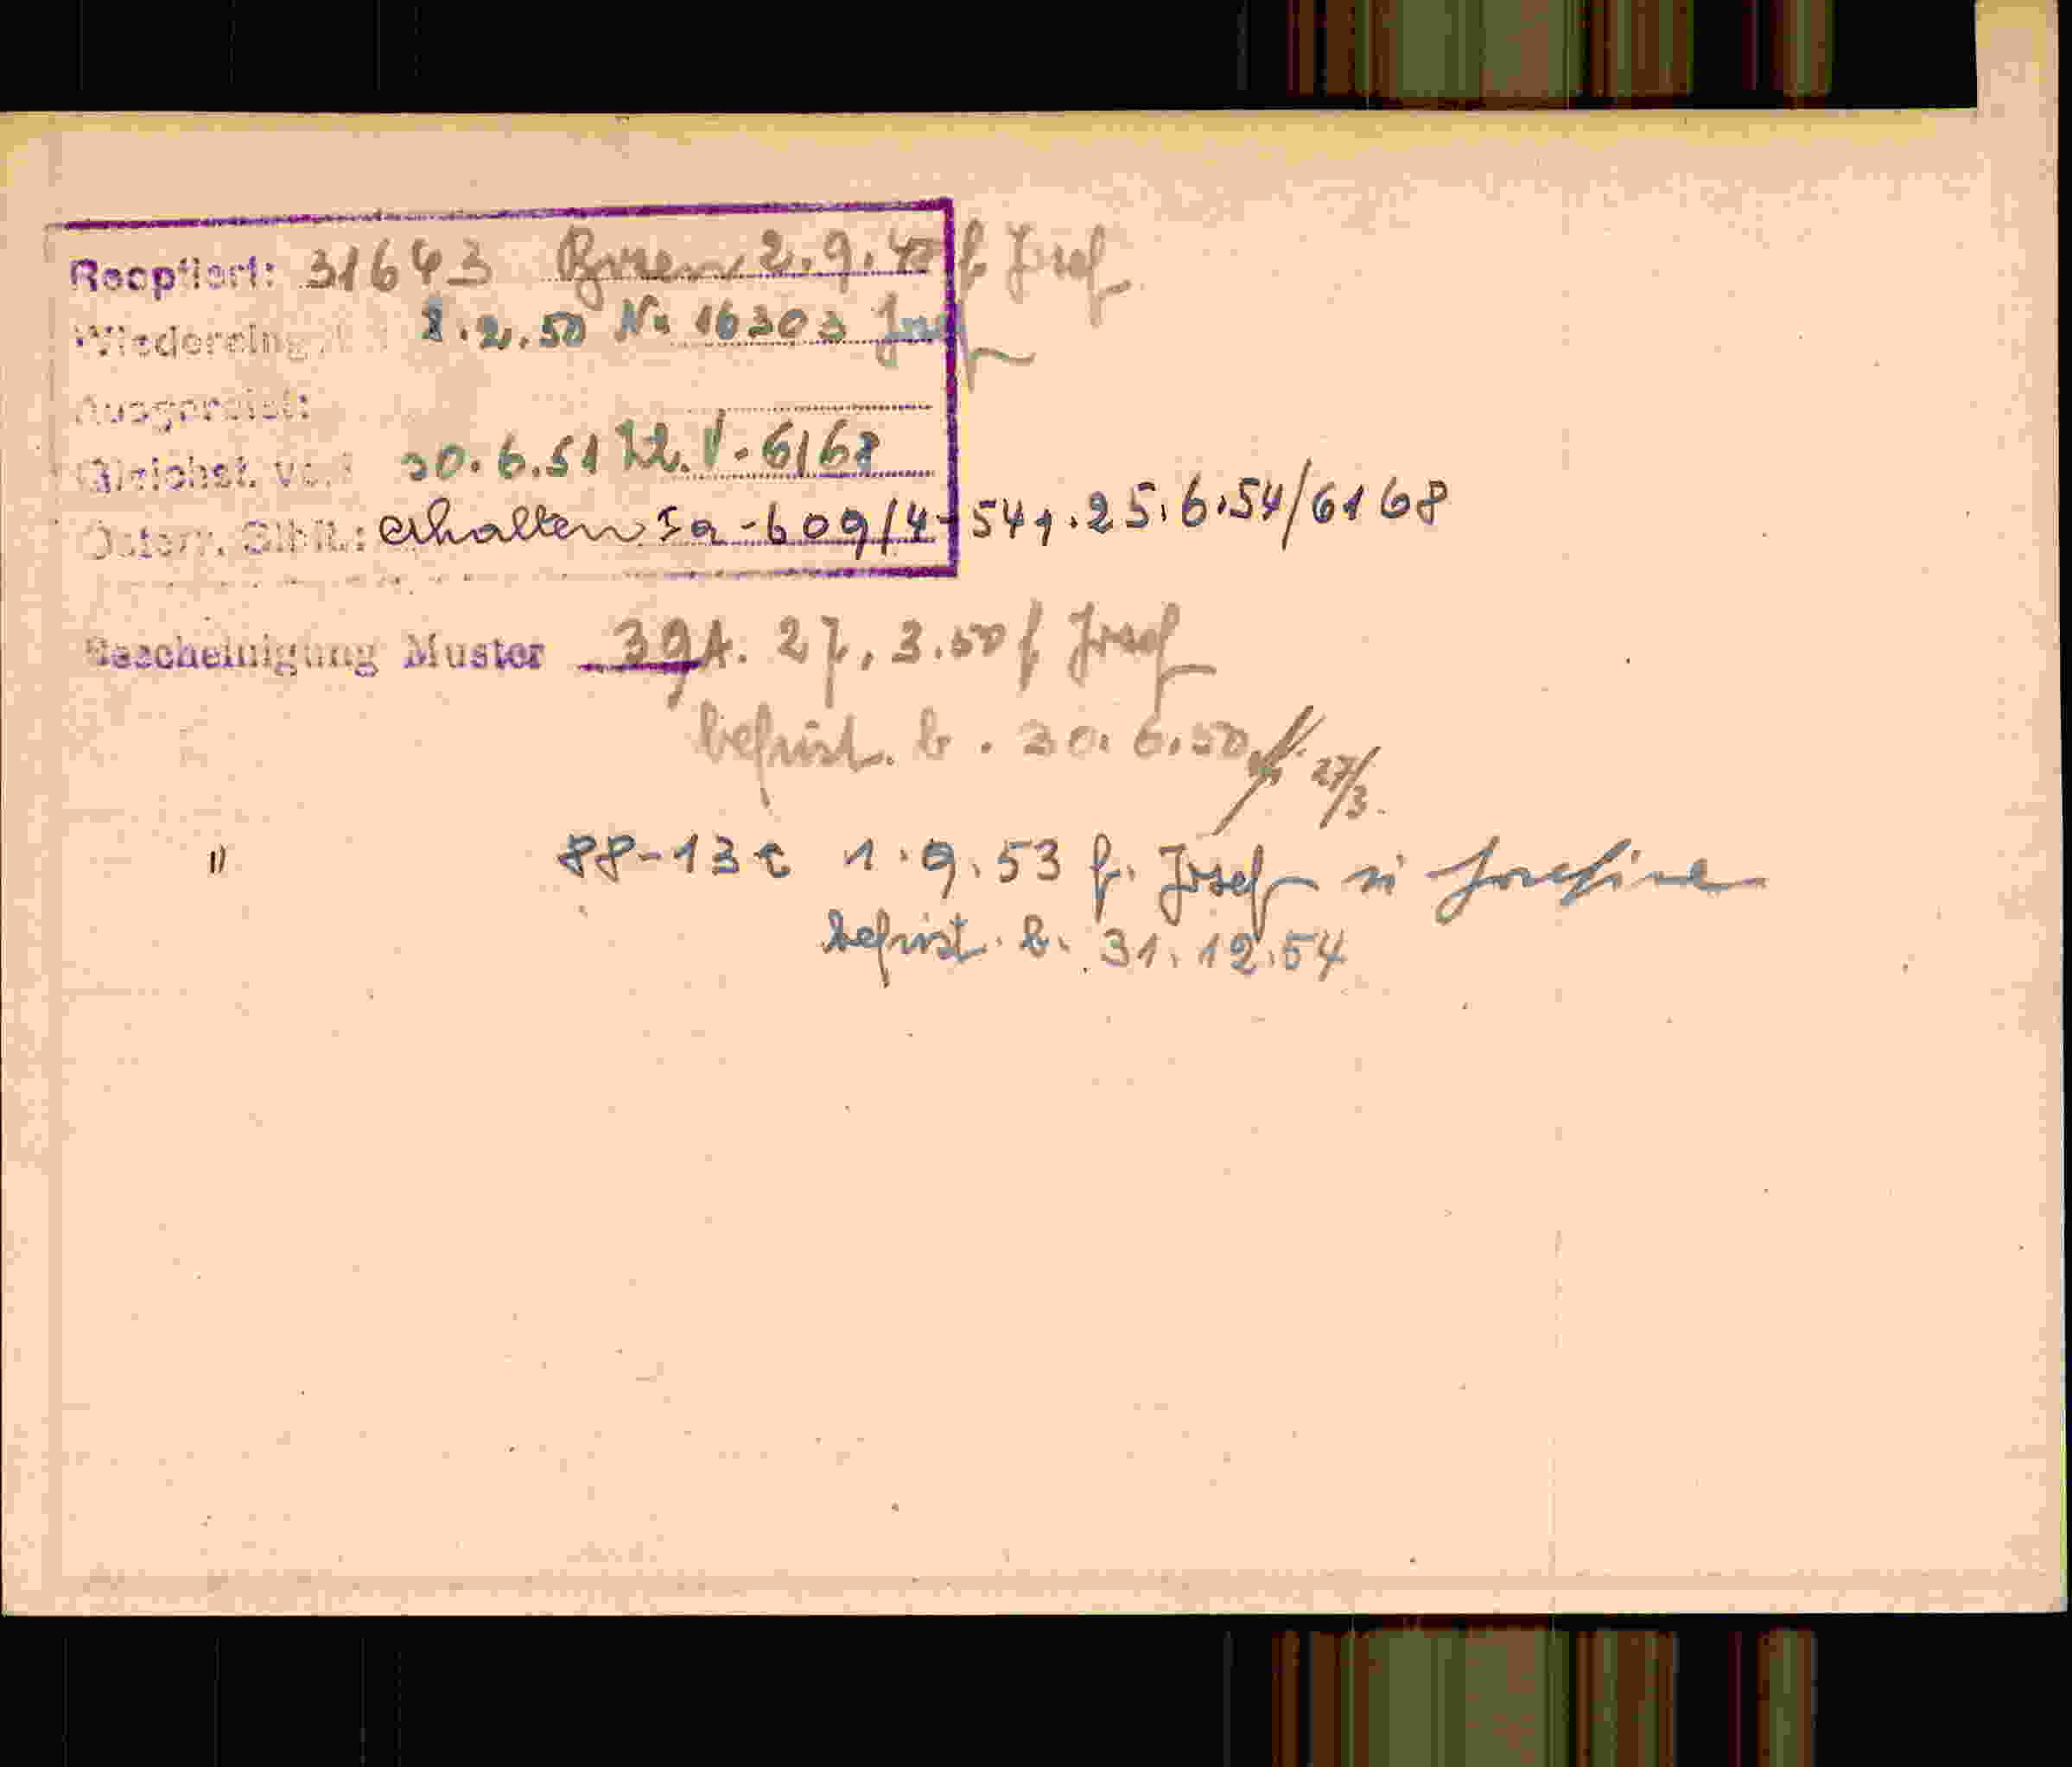 Reoptiert: 31643 Bozen 2.9.48 f. Josef
Wiedereing.: 2.2.50 No 16303 Josef
Ausgereist:
Gleichst. v. 30.6.51 Zl. V-6168
Österr. Stbft.: erhalten Ia-609/4-54, v. 25.6.54/6168
Bescheinigung Muster 39A. 27.3.50 f. Josef
befrist. b. 30.6.50 27/3.
1) 88-13c 1.9.53 f. Josef u Josefine
befrist. b. 31.12.54